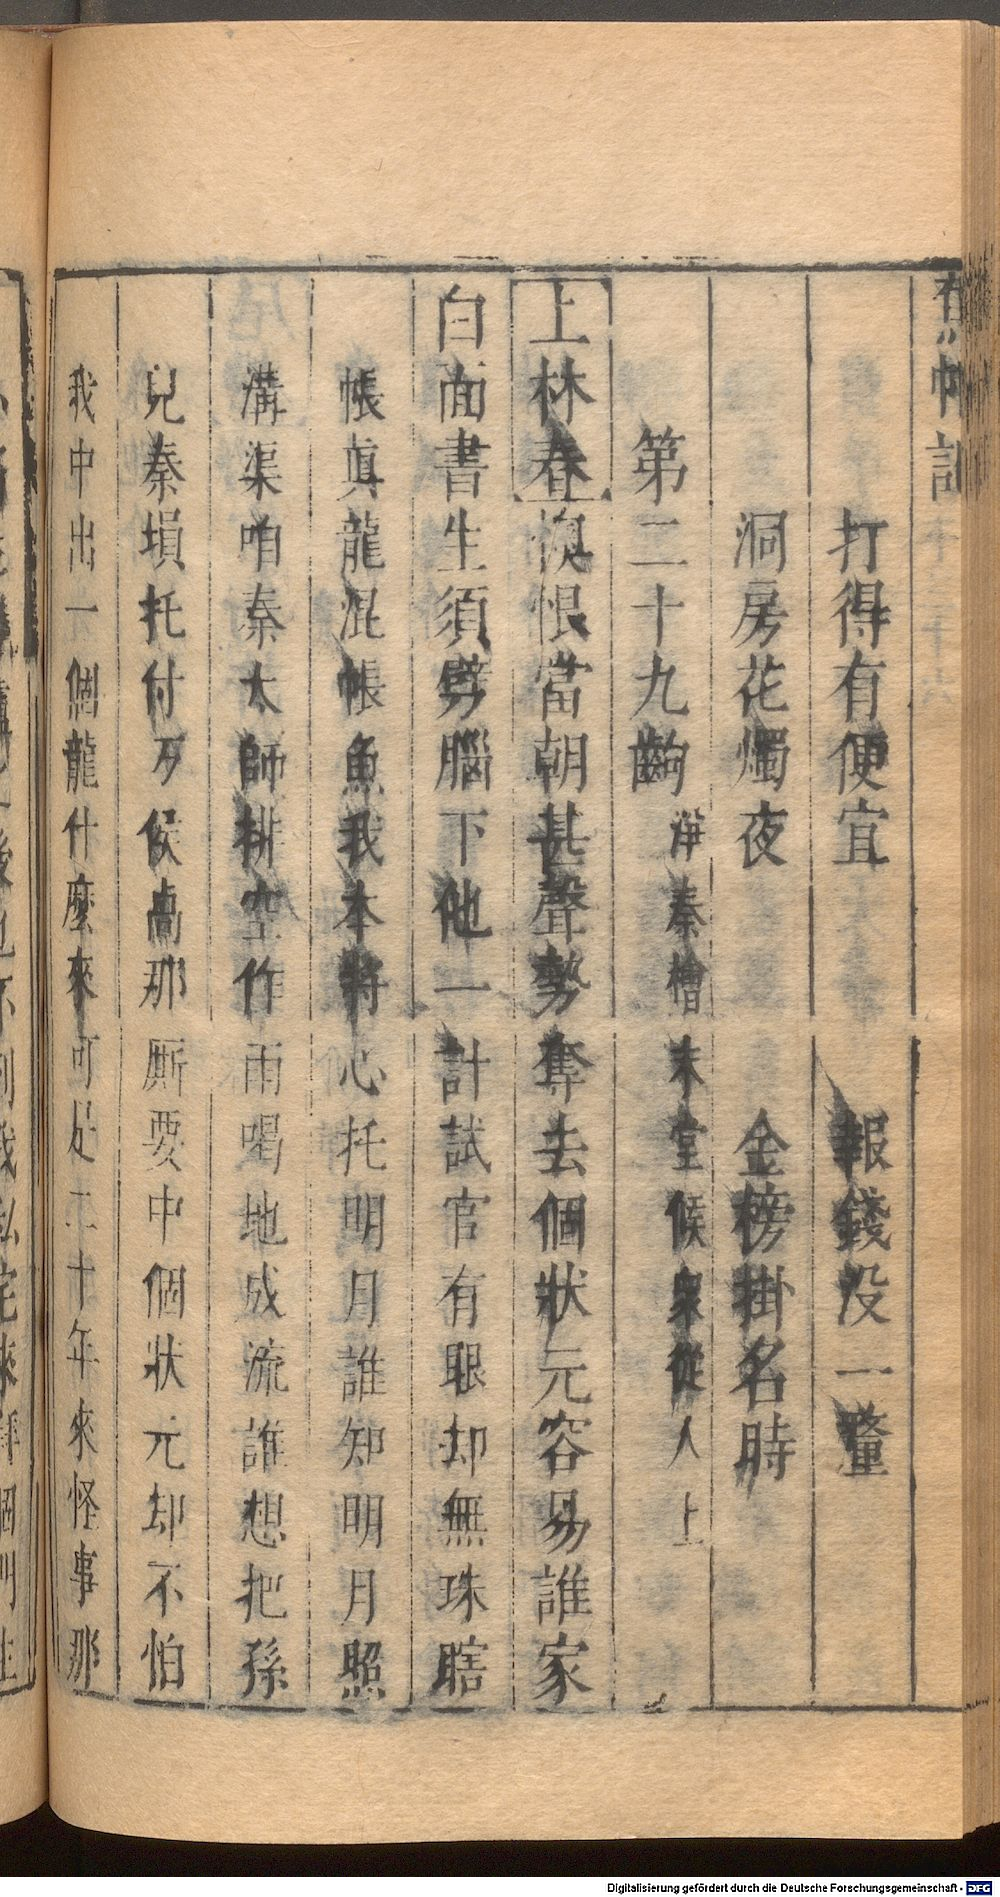 打得有便宜　報錢没一釐
洞房花燭夜　金榜掛名時
第二十九齣　淨秦檜末堂候衆從人上
上林春　恨當朝甚聲勢奪去個狀元容易誰家
白面書生須劈腦下他一計試官有眼却無珠瞎
帳眞龍混帳魚我本將心托明月誰知明月照
溝渠咱秦太師排空作雨喝地成流誰想把孫
兒秦塤托付歹侯高那厮要中個狀元却不怕
我中出一個龍什麼來可是二十年來怪事那
Digitalisierung gefördert durch die Deutsche Forschungsgemeinschaft - DFG